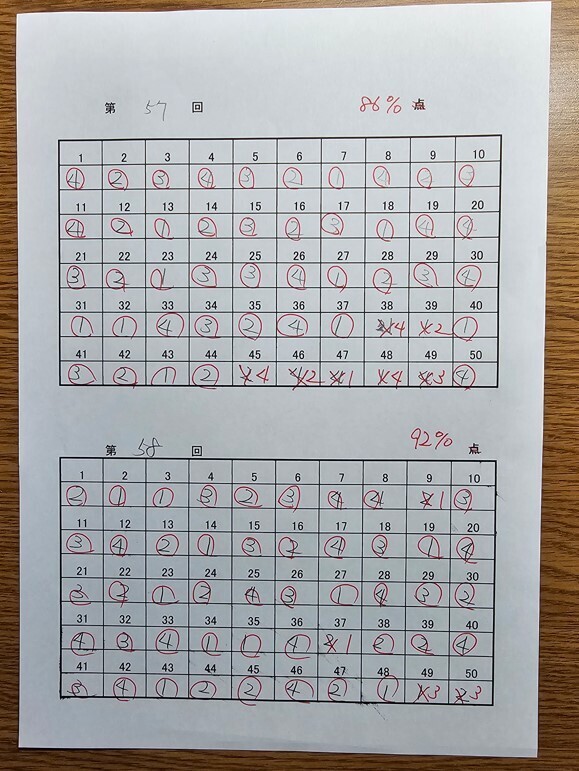 第 57 回 86% 点
1 2 3 4 5 6 7 8 9 10
4 2 3 4 3 2 1 4 2 3
11 12 13 14 15 16 17 18 19 20
4 2 1 2 3 2 3 1 4 4
21 22 23 24 25 26 27 28 29 30
3 2 1 3 3 4 1 2 3 4
31 32 33 34 35 36 37 38 39 40
1 1 4 3 2 4 1 4 2 1
41 42 43 44 45 46 47 48 49 50
3 2 1 2 4 2 1 4 3 4
第 58 回 92% 点
1 2 3 4 5 6 7 8 9 10
2 1 1 3 2 3 4 4 1 3
11 12 13 14 15 16 17 18 19 20
3 4 2 1 3 2 4 3 1 4
21 22 23 24 25 26 27 28 29 30
3 2 1 2 4 3 1 4 3 2
31 32 33 34 35 36 37 38 39 40
4 3 4 1 1 4 1 2 2 4
41 42 43 44 45 46 47 48 49 50
3 4 1 2 2 4 2 1 3 3